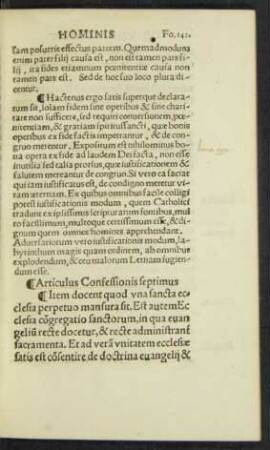 HOMINIS Fo. 141.
sam posuris effectus partem. Quemadmodum
enim pater filij causa est, non est tamen pars fi-
lij, ita fides etiamnum pœnitentiæ causa non
tamen pars est. Sed de hoc suo loco plura di-
centur.
¶ Hactenus ergo satis superque declara-
tum sit, solam fidem sine operibus & sine chari-
tate non sufficere, sed requiri conuersionem, pœ-
nitentiam, & gratiam spiritus sancti, quæ bonis
operibus ex fide factis impetrantur, & de con-
gruo merentur. Expositum est nihilominus bo-
na opera ex fide ad laudem Dei facta, non esse
inutilia sed talia prorsus, quæ iustificationem &
salutem mereantur de congruo. Si vero ea faciat
qui iam iustificatus est, de condigno meretur vi-
tam æternam. Ex quibus omnibus facile colligi
potest iustificationis modum, quem Catholici
tradunt ex ipsissimis scripturarum fontibus, mul
to facillimum, multoque certissimum esse, & di-
gnum quem omnes homines apprehendant.
Aduersariorum vero iustificationis modum, la-
byrinthum magis quam ordinem, ab omnibus
explodendum, & ceu malorum Lernam fugien-
dum esse.
¶ Articulus Confessionis septimus
¶ Item docent quod vna sancta ec-
clesia perpetuo mansura sit. Est autem Ec
clesia cōgregatio sanctorum, in qua euan
geliū recte docetur, & recte administrant̃
sacramenta. Et ad verā vnitatem ecclesiæ
satis est cōsentire de doctrina euangelij &